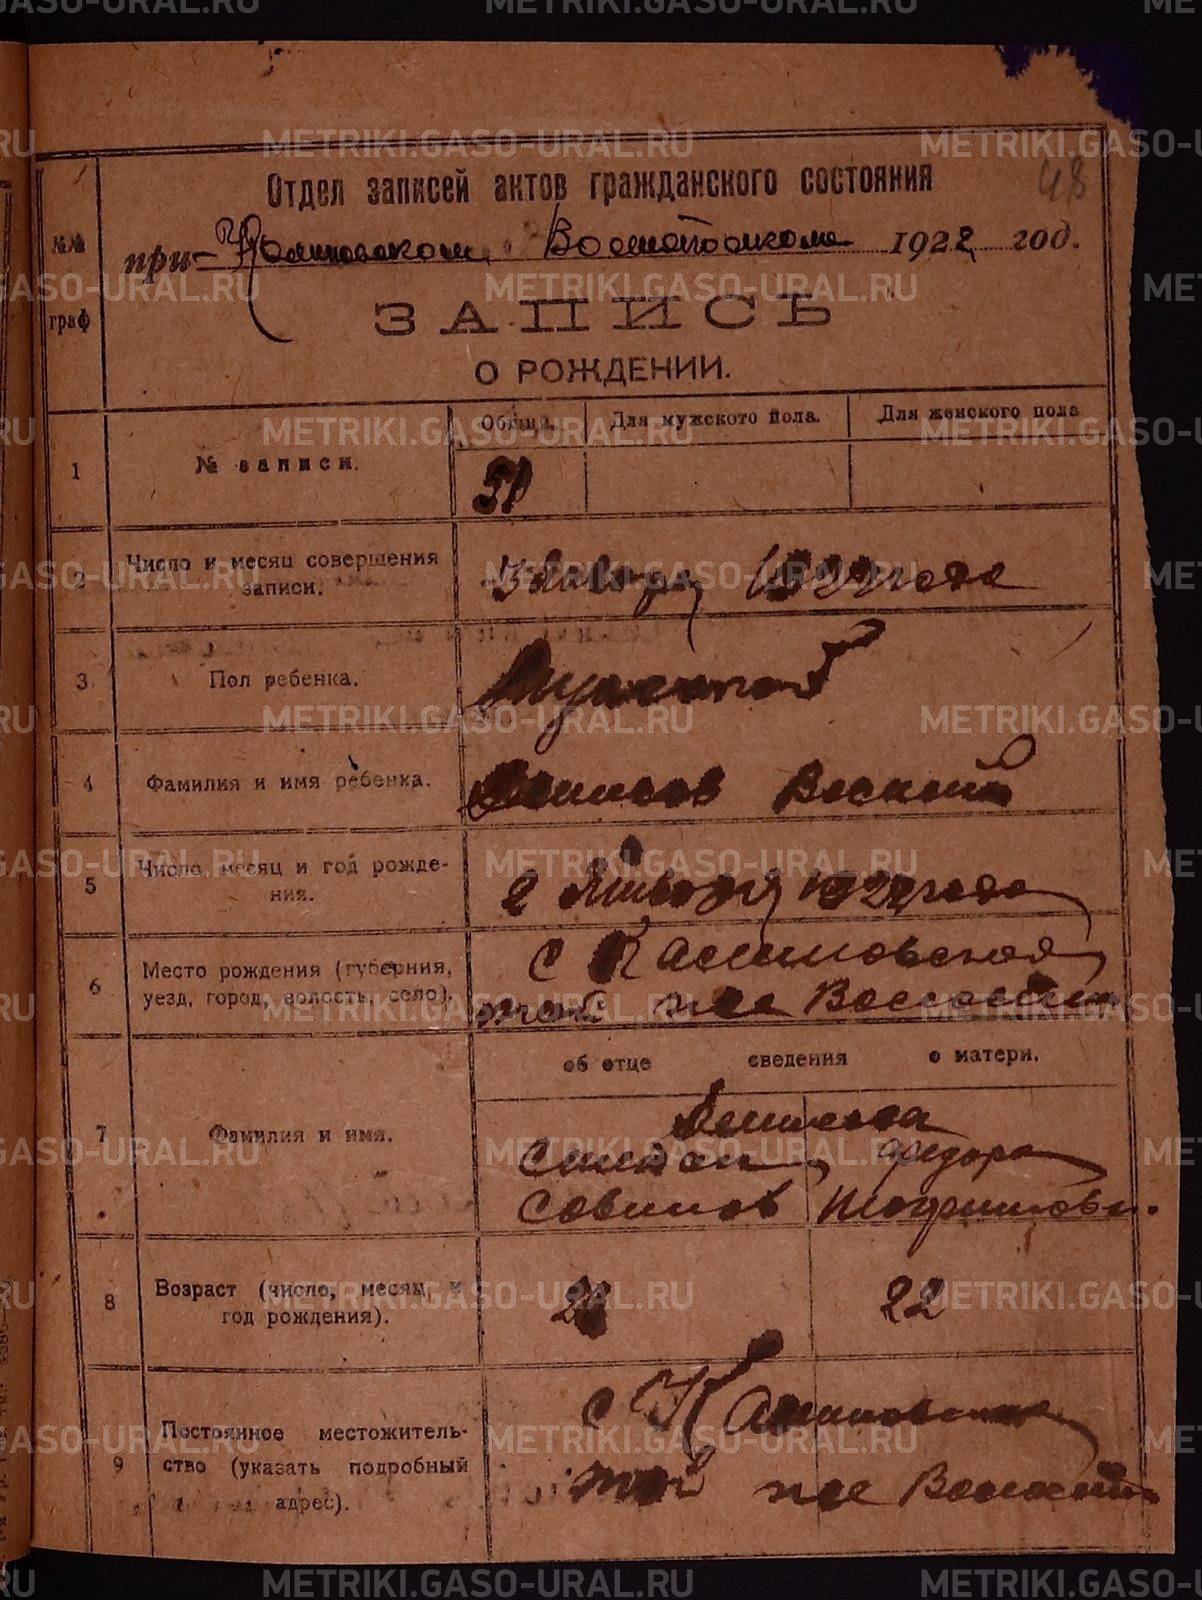 48
Отдел записей актов гражданского состояния
№№
граф
при 1922 год.
ЗАПИСЬ
О РОЖДЕНИИ.
Общий. Для мужского пола. Для женского пола
1 № записи. 51
2 Число и месяц совершения
записи.
3 Января 1922 года
3 Пол ребенка. Мужской
4 Фамилия и имя ребенка. Денисов Василий
5 Число, месяц и год рожде-
ния.
2 Января 1922 года
6 Место рождения (губерния,
уезд, город, волость, село).
с
той же Волости
об отце сведения о матери.
7 Фамилия и имя.
Денисова
Федора
Совинов
8 Возраст (число, месяц и
год рождения).
22
9 Постоянное местожитель-
ство (указать подробный
адрес).
с
той же
METRIKI.GASO-URAL.RU